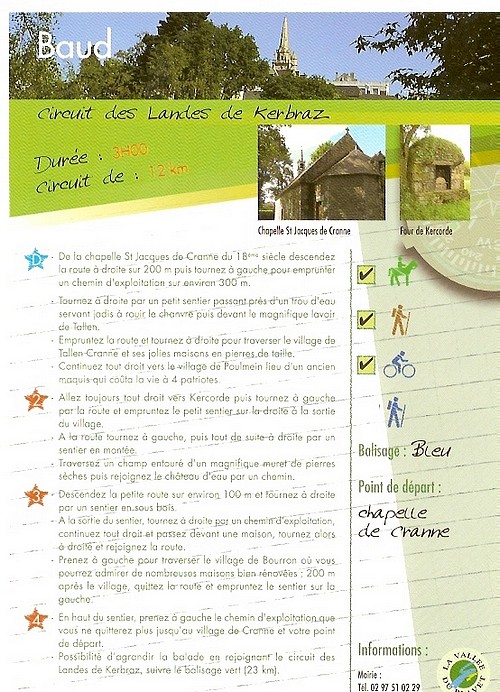 Baud
Circuit des Landes de Kerbraz
Durée : 3H00
Circuit de : 12 km
Chapelle St Jacques de Cranne
Four de Kercorde
D
- De la chapelle St Jacques de Cranne du 18ème siècle descendez
la route à droite sur 200 m puis tournez à gauche pour emprunter
un chemin d'exploitation sur environ 300 m.
- Tournez à droite par un petit sentier passant près d'un trou d'eau
servant jadis à rouir le chanvre puis devant le magnifique lavoir
de Tallen.
- Empruntez la route et tournez à droite pour traverser le village de
Tallen-Cranne et ses jolies maisons en pierres de taille.
- Continuez tout droit vers le village de Poulmein lieu d'un ancien
maquis qui coûta la vie à 4 patriotes.
2
- Allez toujours tout droit vers Kercorde puis tournez à gauche
par la route et empruntez le petit sentier sur la droite à la sortie
du village.
- A la route tournez à gauche, puis tout de suite à droite par un
sentier en montée.
- Traversez un champ entouré d'un magnifique muret de pierres
sèches puis rejoignez le château d'eau par un chemin.
3
- Descendez la petite route sur environ 100 m et tournez à droite
par un sentier en sous bois.
- A la sortie du sentier, tournez à droite par un chemin d'exploitation,
continuez tout droit et passez devant une maison, tournez alors
à droite et rejoignez la route.
- Prenez à gauche pour traverser le village de Bourron où vous
pourrez admirer de nombreuses maisons bien rénovées ; 200 m
après le village, quittez la route et empruntez le sentier sur la
gauche.
4
- En haut du sentier, prenez à gauche le chemin d'exploitation que
vous ne quitterez plus jusqu'au village de Cranne et votre point
de départ.
- Possibilité d'agrandir la balade en rejoignant le circuit des
Landes de Kerbraz, suivre le balisage vert (23 km).
Balisage : Bleu
Point de départ :
chapelle
de Cranne
Informations :
Mairie :
Tél. 02 97 51 02 29
LA VALLÉE